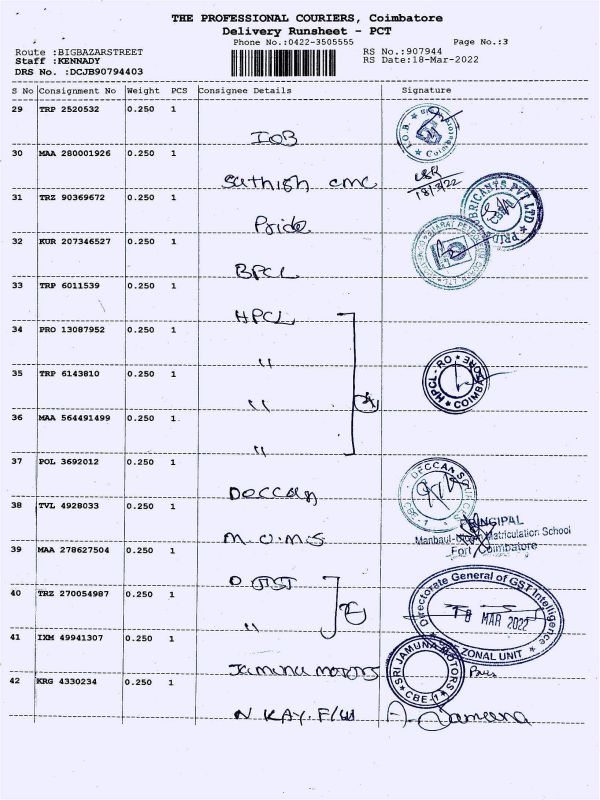 THE PROFESSIONAL COURIERS, Coimbatore
Delivery Runsheet - PCT
Phone No.:0422-3505555
Page No.:3
Route :BIGBAZARSTREET
RS No.:907944
Staff :KENNADY
RS Date:18-Mar-2022
DRS No. :DCJB90794403
S No Consignment No Weight PCS Consignee Details Signature
29 TRP 2520532 0.250 1
IOB
I.O.B.
30 MAA 280001926 0.250 1
Sathish cmc
18/3/22
31 TRZ 90369672 0.250 1
Pride
PRIDE LUBRICANTS PVT LTD
32 KUR 207346527 0.250 1
BPCL
33 TRP 6011539 0.250 1
HPCL
34 PRO 13087952 0.250 1
"
35 TRP 6143810 0.250 1
"
HPCL - RO * COIMBATORE *
36 MAA 564491499 0.250 1
"
37 POL 3692012 0.250 1
Deccan
DECCAN
CBE-1
38 TVL 4928033 0.250 1
M.U.M.S
PRINCIPAL
Matriculation School
Fort, Coimbatore
39 MAA 278627504 0.250 1
40 TRZ 270054987 0.250 1
"
Directorate General of GST Intelligence
18 MAR 2022
ZONAL UNIT *
41 IXM 49941307 0.250 1
Jamuna motors
SRI JAMUNA MOTORS
* CBE-1 *
42 KRG 4330234 0.250 1
N KAY. F/W
Jamuna